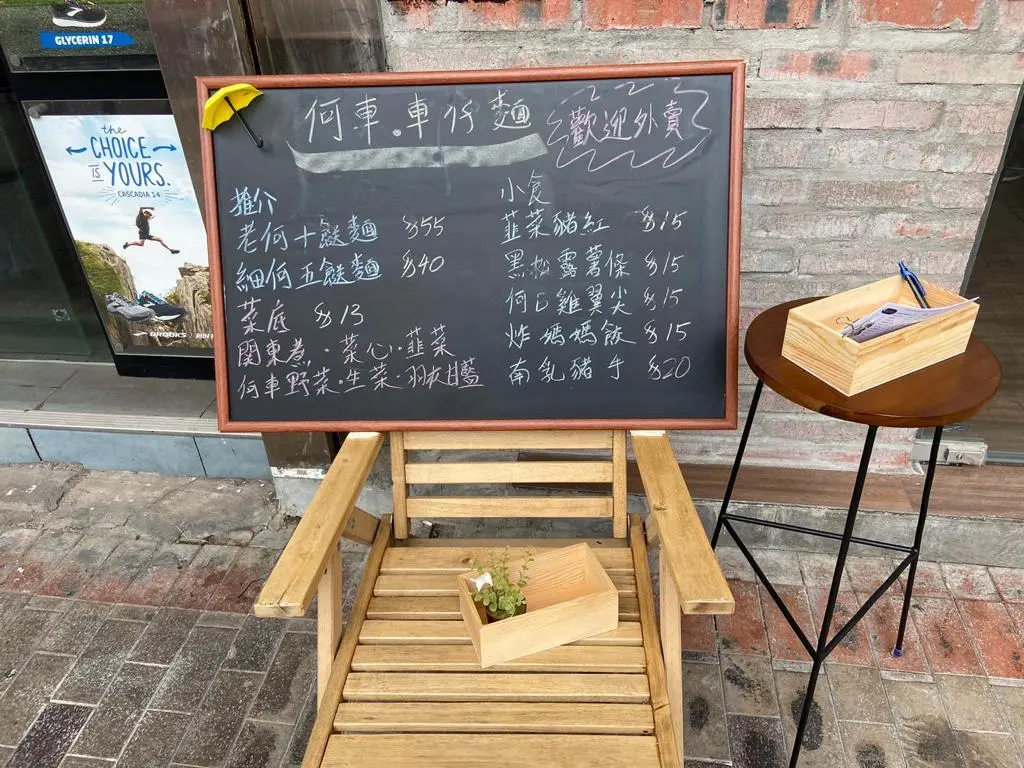 GLYCERIN 17
the
CHOICE
IS
YOURS.
CASCADIA 14
BROOKS
何車.車仔麵
歡迎外賣
推介
老何十餸麵 $55
細何五餸麵 $40
菜底 $13
関東煮.菜心.韮菜
何車野菜.生菜.羽衣甘藍
小食
韮菜豬紅 $15
黑松露薯條 $15
何B雞翼尖 $15
炸媽媽餃 $15
南乳豬手 $20